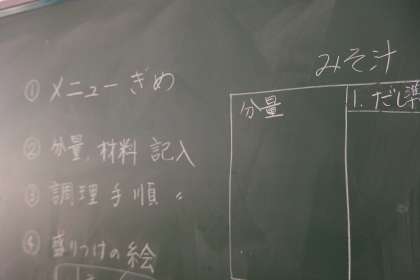 ① メニューぎめ
② 分量、材料 記入
③ 調理手順 〃
④ 盛りつけの絵
みそ汁
分量
1. だし準